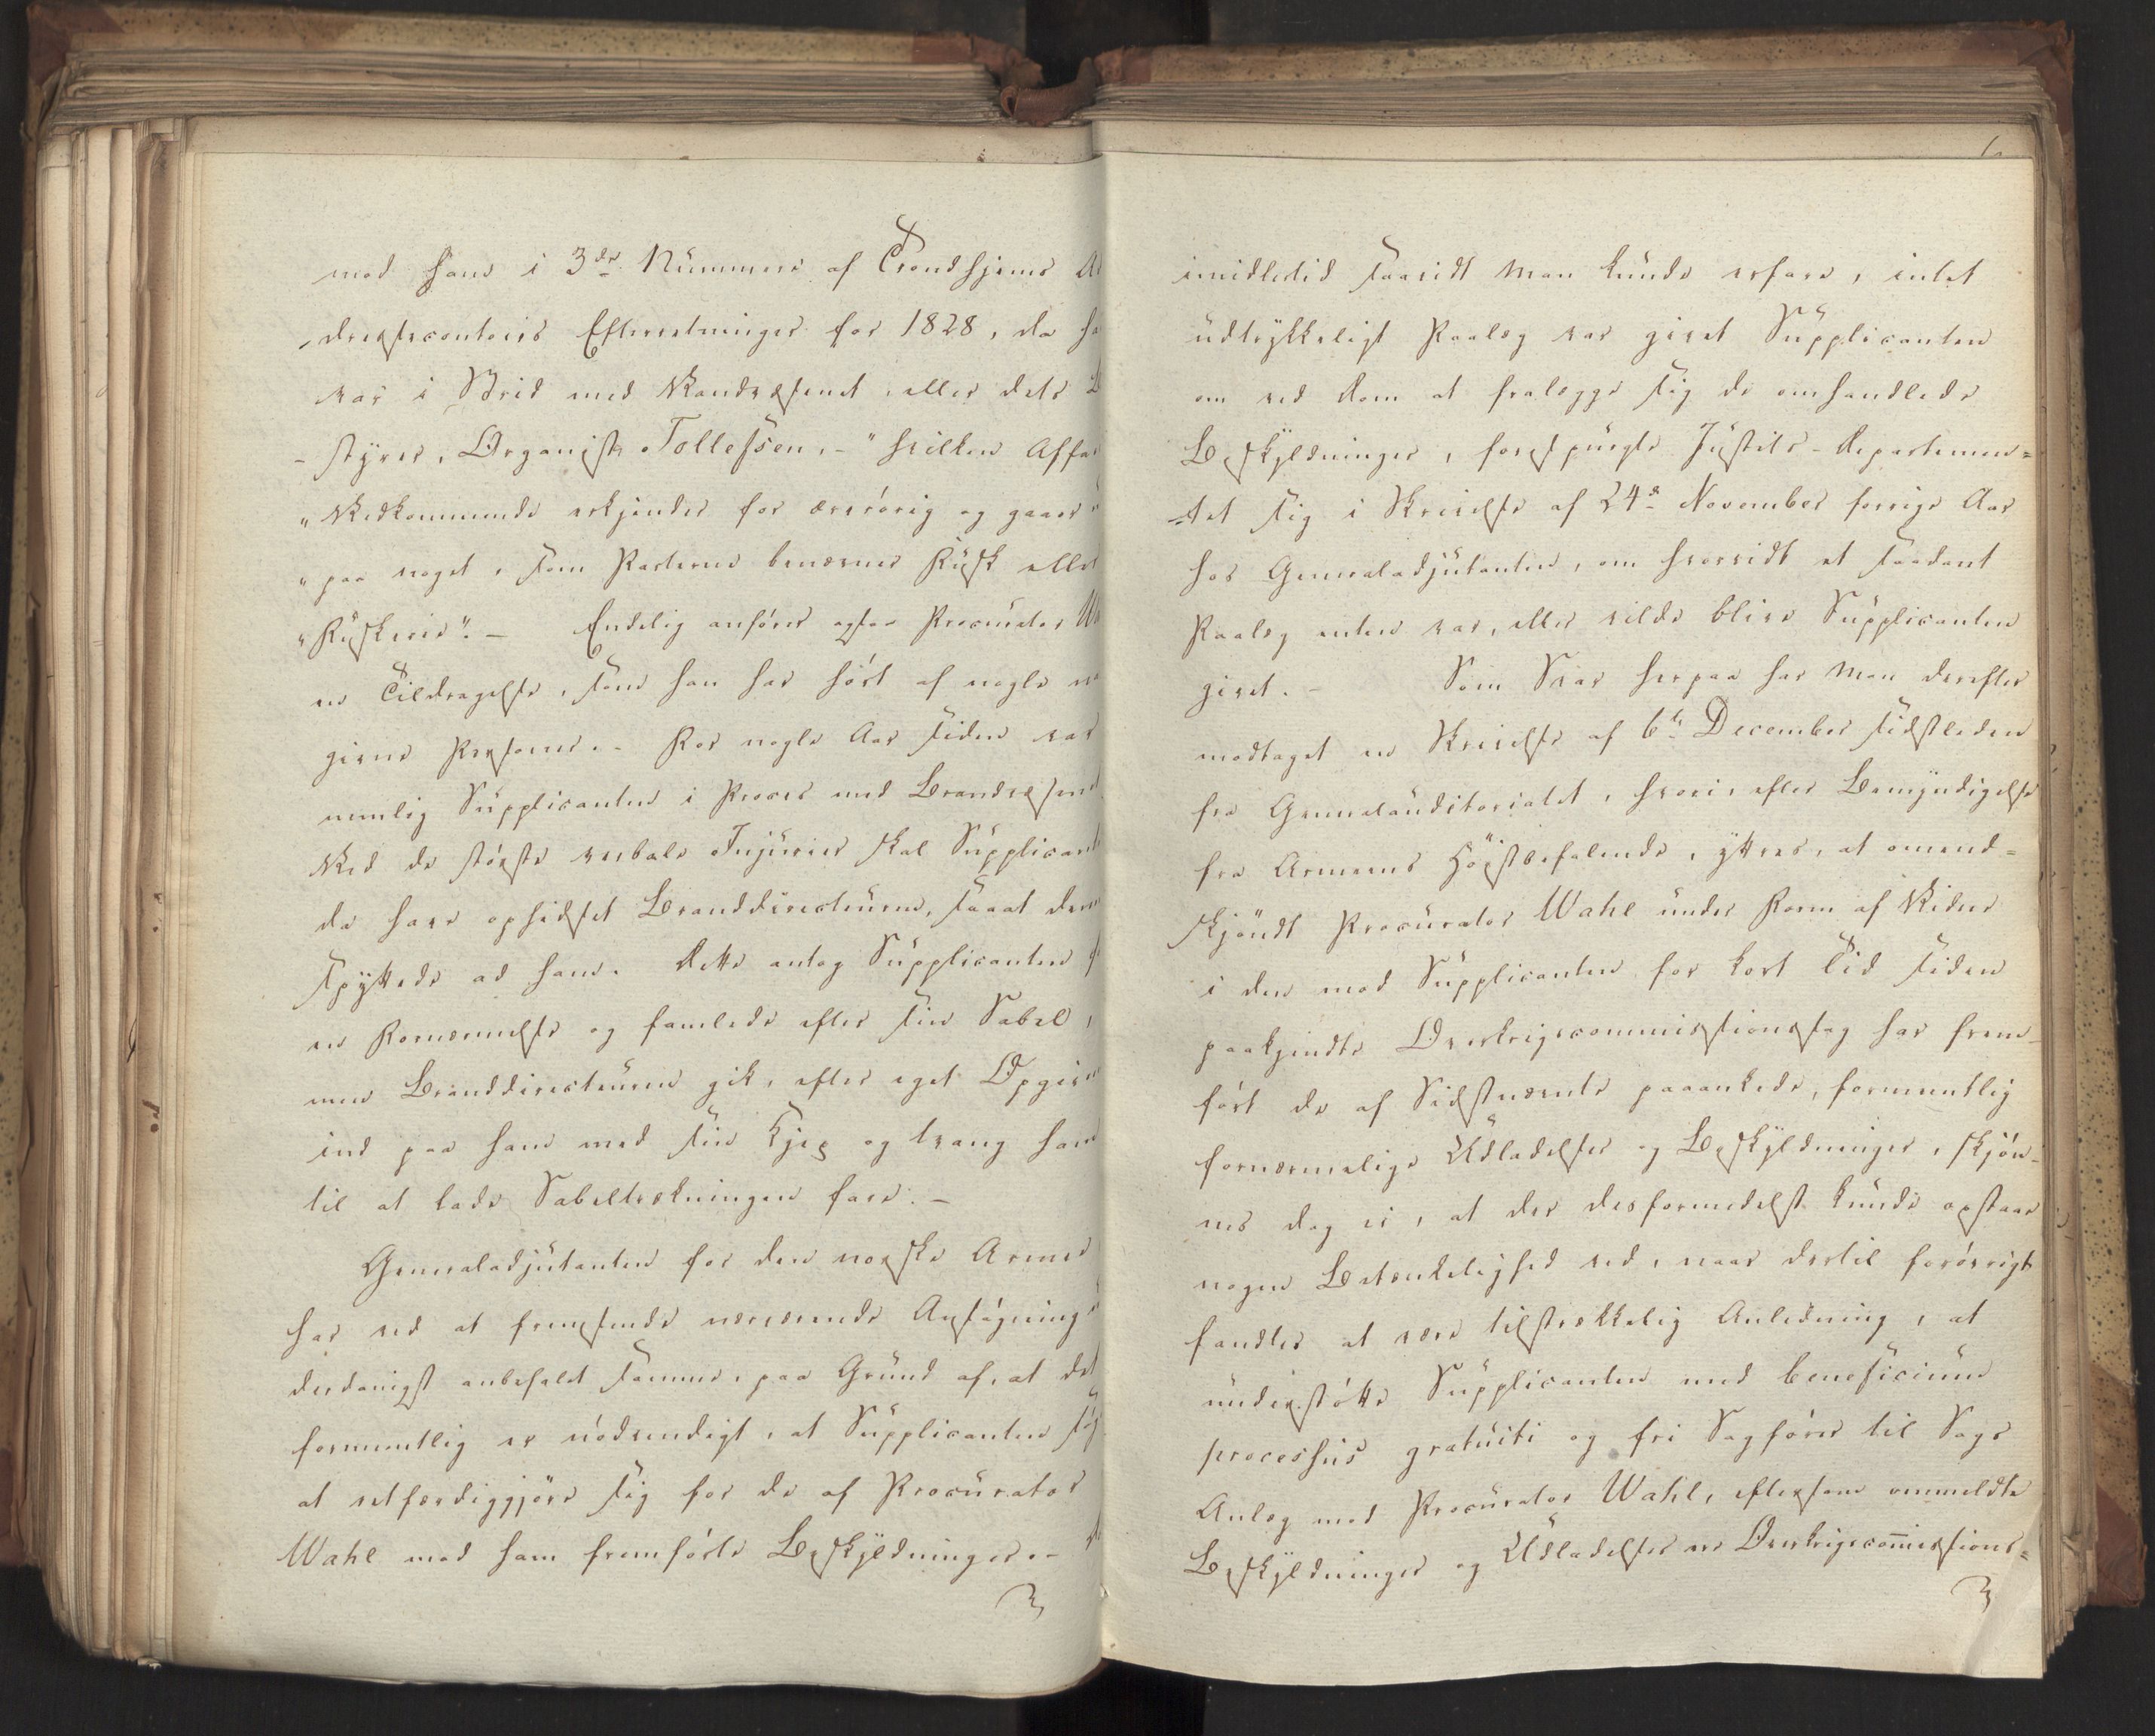 mod ham i 3die Nummer af Trondhjems A
dressecontoirs Efterretninger for 1828, da ha
var i Strid med Vandvæsenet, eller dets B
-styrer, Organist Tellefsen, - "hvilken Affai
"Vedkommende erkjender for ærerørig og gaaer
"paa noget, som Parterne benævner Fusk eller
"Fuskerie". - Endelig anfører ogsaa Procurator Wa
en Tildragelse, som han har hørt af nogle
givne Personer. - For nogle Aar siden var
nemlig Supplicanten i Proces med Brandvæsenet
Ved de største verbale Injurier skal Supplicant
da have ophidset Branddirecteuren, saaat denne
spyttede ad ham. Dette antog Supplicanten
en Fornærmelse og famlede efter sin Sabel,
men Branddirecteuren gik, efter eget Opgive
ind paa ham med sin Kjep og tvang ham
til at lade Sabeltrækningen fare. -
Generaladjutanten for den norske Armee
har ved at fremsende nærværende Ansøgning
derdanigst anbefalet samme, paa Grund af, at det
formeentlig er nødvendigt, at Supplicanten søg
at retfærdiggjøre sig for de af Procurator
Wahl mod ham fremførte Beskyldninger. - D
imidlertid saavidt man kunde erfare, intet
udtrykkeligt Paalæg var givet Supplicanten
om ved Dom at fralægge sig de omhandlede
Beskyldninger, forespurgte Justits-Departemen=
=tet sig i Skrivelse af 24de November forrige Aar
hos Generaladjutanten, om hvorvidt et saadant
Paalæg enten var, eller vilde blive Supplicanten
givet. - Som Svar herpaa har man derefter
modtaget en Skrivelse af 6te December sidstleden
fra Generalauditoriatet, hvori, efter Bemyndigelse
fra Armeens Høistbefalende, yttres, at omend=
skjøndt Procurator Wahl under Form af Vidner
i den mod Supplicanten for kort Tid siden
paakjendte Overkrigscommissionssag har frem-
ført de af Sidstnævnte paaankede, formeentlig
fornærmelige Udladelser og Beskyldninger, skjøn-
nes dog ei, at der desformedelst kunde opstaae
nogen Betænkelighed ved, naar dertil forøvrigt
fandtes at være tilstrækkelig Anledning, at
understøtte Supplicanten med beneficium
processus gratuiti og fri Sagfører til Sags
Anlæg mod Procurator Wahl, eftersom ommeldte
Beskyldninger og Udladelser ere Overkrigscommissions=